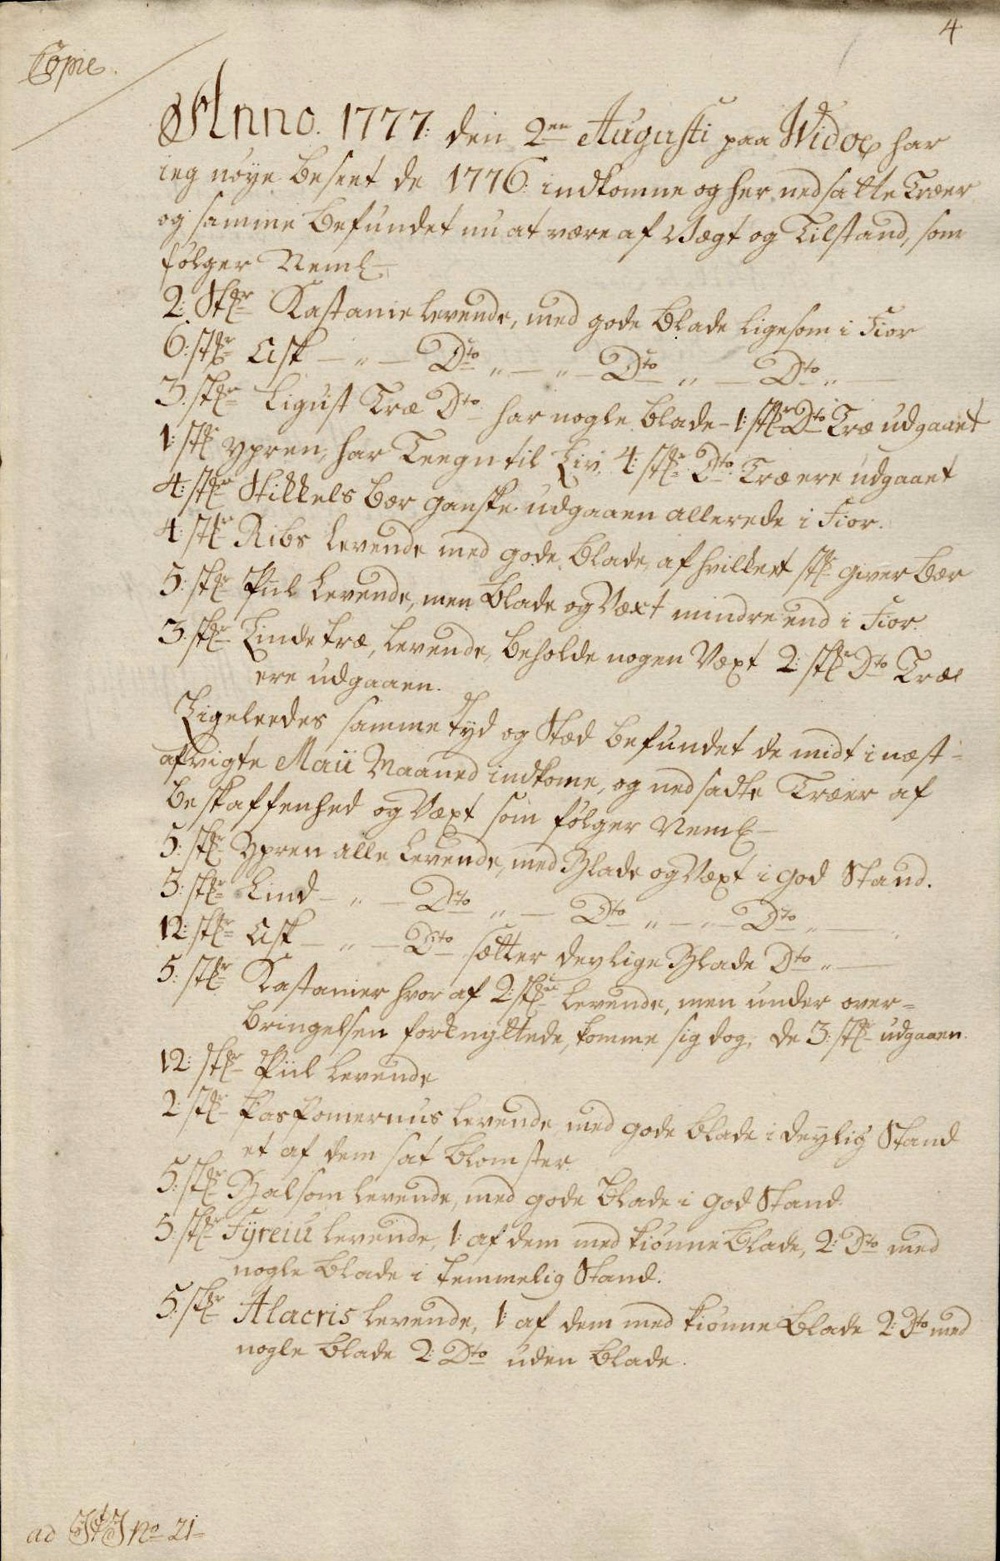 4
Copie.
Anno. 1777: den 2en Augusti paa Widöe har
ieg nöye beseet de 1776. indkomne og her nedsatte Træer
og samme befundet nu at være af Vægt og Tilstand, som
fölger Neml.
2: Stkr Kastanie levende, med gode blade ligesom i Fior
6: stkr Ask — „ — Dto „ — „ — Dto „ — Dto „ —
3. stkr Ligust Træ Dto har nogle blade – 1: stkr Dto Træ udgaaet
1: stk ypren, har Teegn til Liv. 4: stkr Dto Træ ere udgaaet
4: stkr Stikkels bær ganske udgaaen allerede i Fior.
4: stkr Ribs levende med gode blade, af hvilket stk giver bær
5: stkr Piil levende, men blade og Væxt mindre end i Fior.
3: stkr Linde træ, levende, beholde nogen Væxt 2: stkr Dto Træe
ere udgaaen.
Ligeleedes samme Tyd og Stæd befundet de midt i næst-
afvigte Maii Maaned indkome, og nedsadte Træer af
beskaffenhed og Væxt som fölger Neml –
5: stkr Ypren alle levende, med Blade og Væxt i god Stand.
5: stkr Lind – „ – Dto „ – Dto „ – „ – Dto „ —
12: stkr Ask – „ – Dto sætter deylige Blade Dto „ —
5. stkr Kastanier hvor af 2: stkr levende, men under over=
bringelsen forknyttede, komme sig dog, de 3: stkr udgaaen.
12: stkr Piil levende
2: stkr levende med gode blade i deylig Stand
et af dem sat blomster.
5: stkr Balsom levende, med gode blade i god Stand
5: stkr Fÿreiü levende, 1: af dem med kiönne blade, 2: Dto med
nogle blade i temmelig Stand.
5: stkr Alacris levende, 1: af dem med kiönne blade 2: Dto med
nogle blade 2: Dto uden blade.
ad No 21=